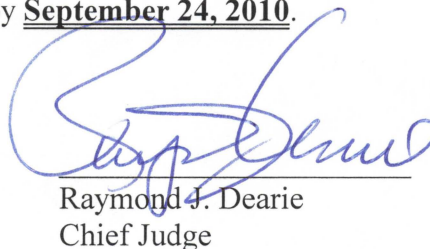 y September 24, 2010.
Raymond J. Dearie
Chief Judge